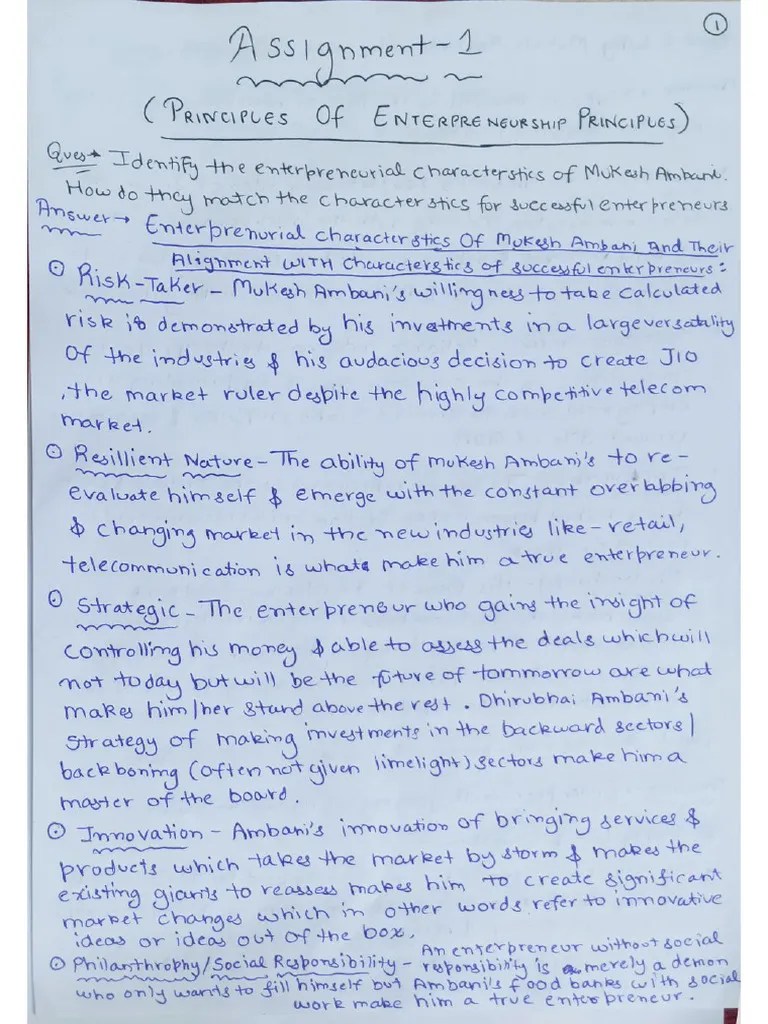 1
Assignment-1
(PRINCIPLES Of ENTERPRENEURSHIP PRINCIPLES)
Ques→ Identify the enterpreneurial characterstics of Mukesh Ambani.
How do they match the characterstics for successful enterpreneurs
Answer→ Enterprenurial characterstics Of Mukesh Ambani And Their
Alignment WITH characterstics of successful enterpreneurs:
⊙ Risk-Taker - Mukesh Ambani's willingness to take calculated
risk is demonstrated by his investments in a large versatality
Of the industries & his audacious decision to create JIO
, the market ruler despite the highly competitive telecom
market.
⊙ Resillient Nature - The ability of Mukesh Ambani's to re-
evaluate himself & emerge with the constant overlabbing
& changing market in the new industries like - retail,
telecommunication is whats make him a true enterpreneur.
⊙ Strategic - The enterpreneur who gains the insight of
Controlling his money & able to assess the deals which will
not today but will be the future of tommorrow are what
makes him/her stand above the rest. Dhirubhai Ambani's
Strategy of making investments in the backward sectors/
backboning (often not given limelight) sectors make him a
master of the board.
⊙ Innovation - Ambani's innovation of bringing services &
products which takes the market by storm & makes the
existing giants to reassess makes him to create significant
market changes which in other words refer to innovative
ideas or ideas out of the box.
⊙ Philanthrophy/Social Responsibility - An enterpreneur without social
responsibility is merely a demon
who only wants to fill himself but Ambani's food banks with social
work make him a true enterpreneur.